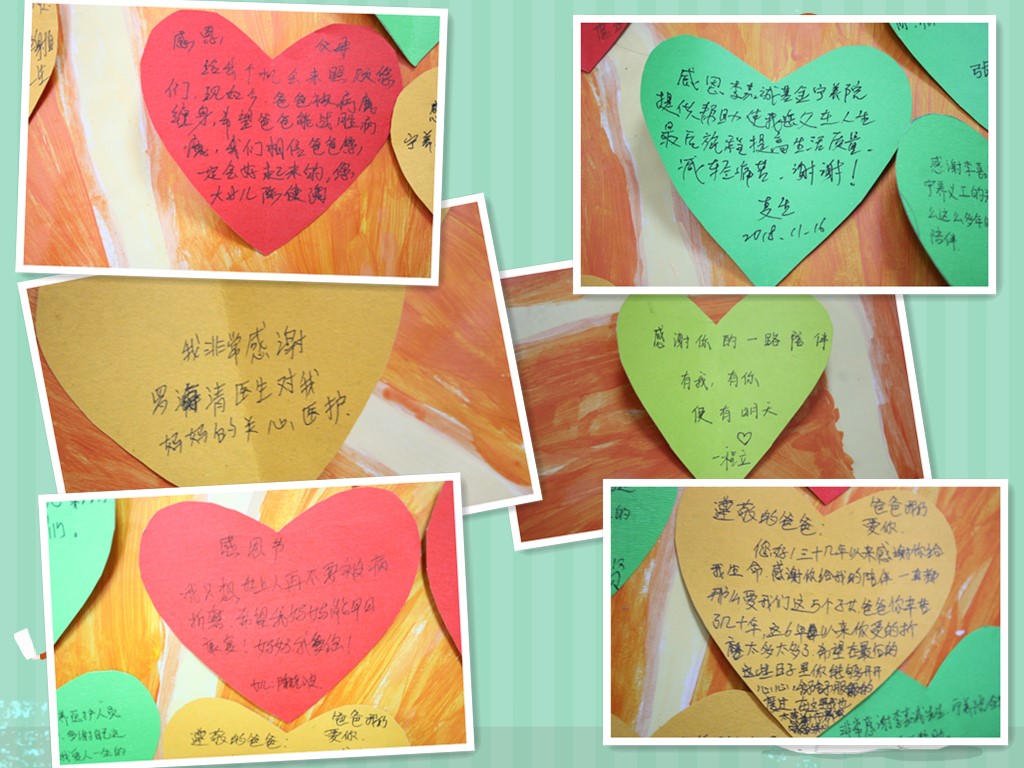 感恩, 父母
给我个机会来照顾您
们，现如今，爸爸被病魔
缠身，希望爸爸能战胜病
魔，我们相信爸爸您，
一定会好起来的，您
大女儿
感恩李嘉诚基金宁养院
提供帮助使我岳父在人生
最后旅程提高生活质量.
减轻痛苦. 谢谢!
2018.11-16
感谢李嘉
宁养义工的
么这么多年的
陪伴
宁养
我非常感谢
罗海清医生对我
妈妈的关心、医护.
感谢你的一路陪伴
有我, 有你
便有明天
感恩节
我只想世上人再不要被病
折磨. 希望我妈妈能早日
康复! 妈妈我爱你!
养医护人员
我爱人一生的
尊敬的爸爸: 爸爸我们
要你.
尊敬的爸爸: 爸爸我们
要你.
您好!三十几年以来感谢你给
我生命.感谢你给我的陪伴一直都
那么爱我们这5个子女爸爸你辛苦
了几十年,这6年以来你受的折
磨太多太多了.希望在最后的
这些日子里你能够开开
心心、舒舒服服的
度过.
非常感谢李嘉诚先生